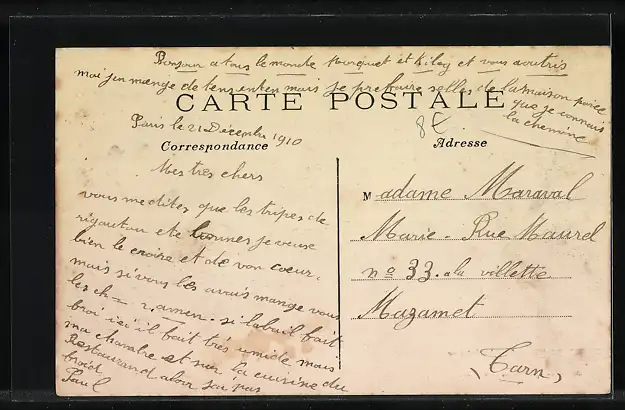 Bonjour a tous le monde fourquet et Kiloy et vous aoutris
moi jen mange de tenzenten mais je prefaire selles de la maison parce
que je connais
la chemine
CARTE POSTALE
8€
Paris le 21 Décembre 1910
Correspondance
Adresse
Mes tres chers
vous me dites que les tripes de
rigautou ete bonnes je veuse
bien le croire et de von coeur.
mais si vous les avais mange vous
les si labuil fait
froi ici il fait trés umide mais
ma chambre et sur la cuisine du
Restaurand alour jai pas
froid
Paul
Madame Maraval
Marie - Rue Maurel
nº 33. ala villette
Mazamet
(Tarn)